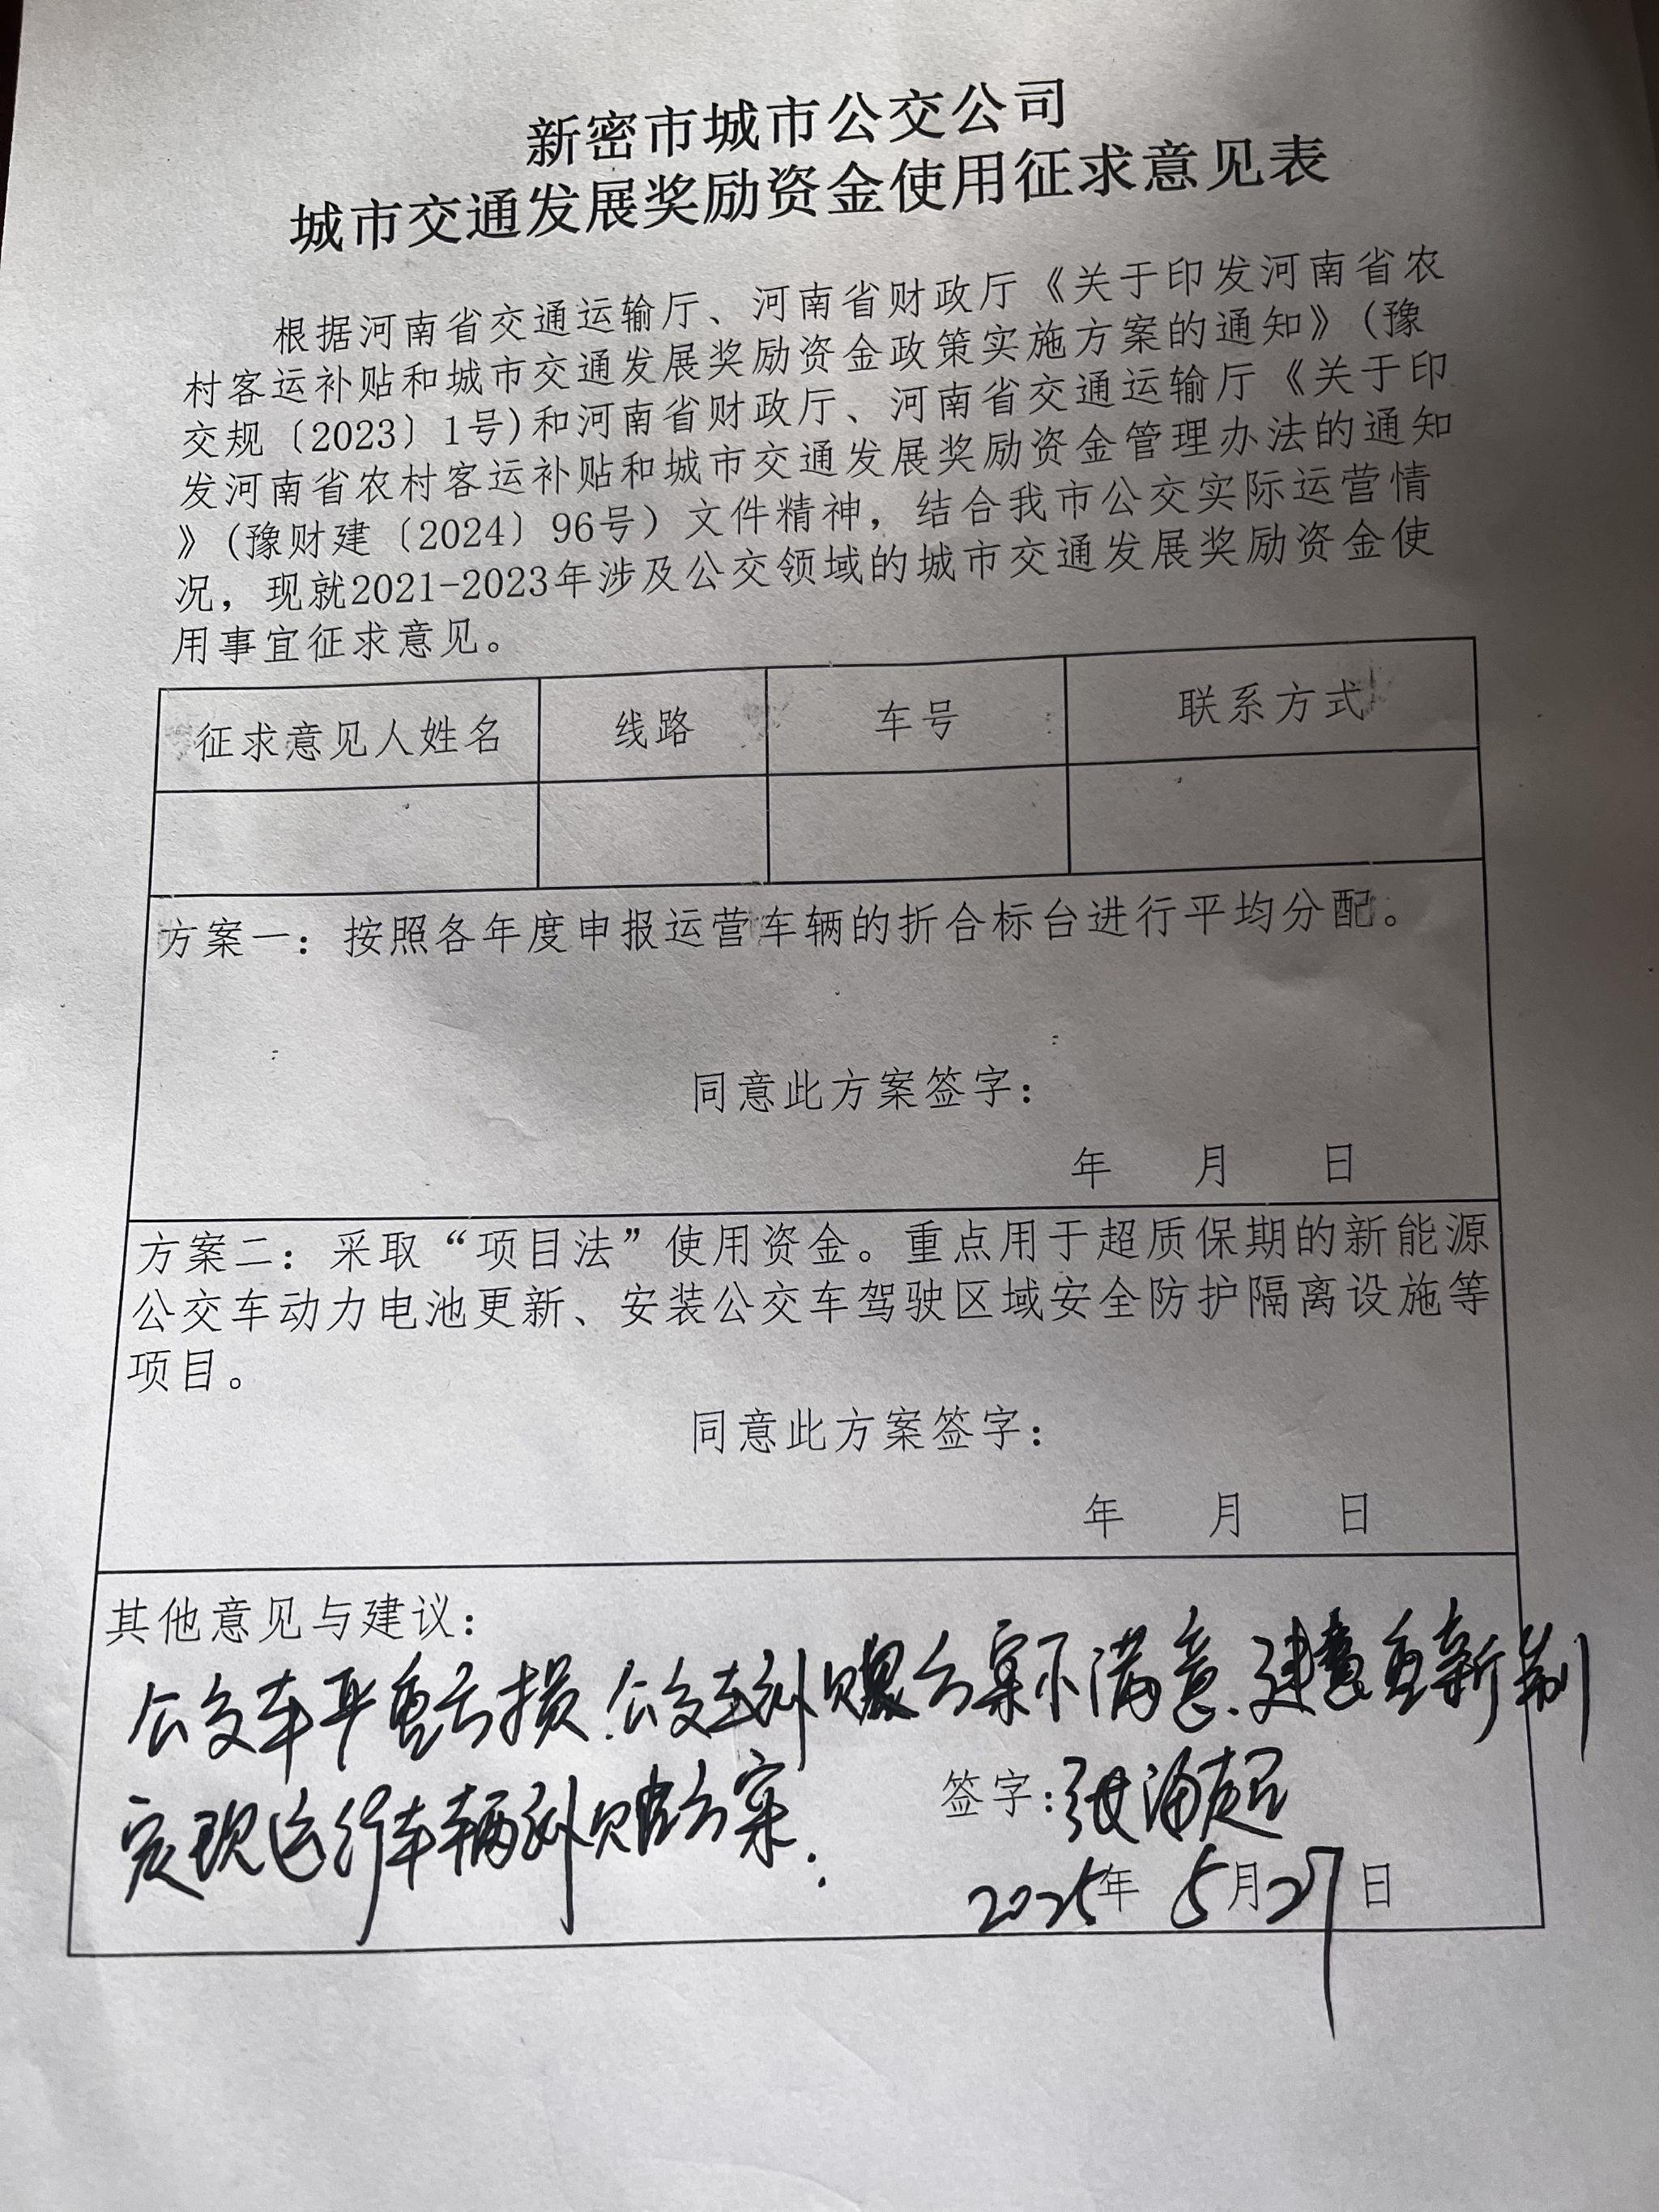 新密市城市公交公司
城市交通发展奖励资金使用征求意见表
根据河南省交通运输厅、河南省财政厅《关于印发河南省农
村客运补贴和城市交通发展奖励资金政策实施方案的通知》(豫
交规〔2023〕1号)和河南省财政厅、河南省交通运输厅《关于印
发河南省农村客运补贴和城市交通发展奖励资金管理办法的通知
》(豫财建〔2024〕96号)文件精神，结合我市公交实际运营情
况，现就2021-2023年涉及公交领域的城市交通发展奖励资金使
用事宜征求意见。
征求意见人姓名 线路 车号 联系方式
方案一：按照各年度申报运营车辆的折合标台进行平均分配。
同意此方案签字：
年 月 日
方案二：采取“项目法”使用资金。重点用于超质保期的新能源
公交车动力电池更新、安装公交车驾驶区域安全防护隔离设施等
项目。
同意此方案签字：
年 月 日
其他意见与建议：
公交车严重亏损.公交车补方案不满意.建意重新制
实现运行车辆补贴方案.
签字：张超
2025年 5月27日